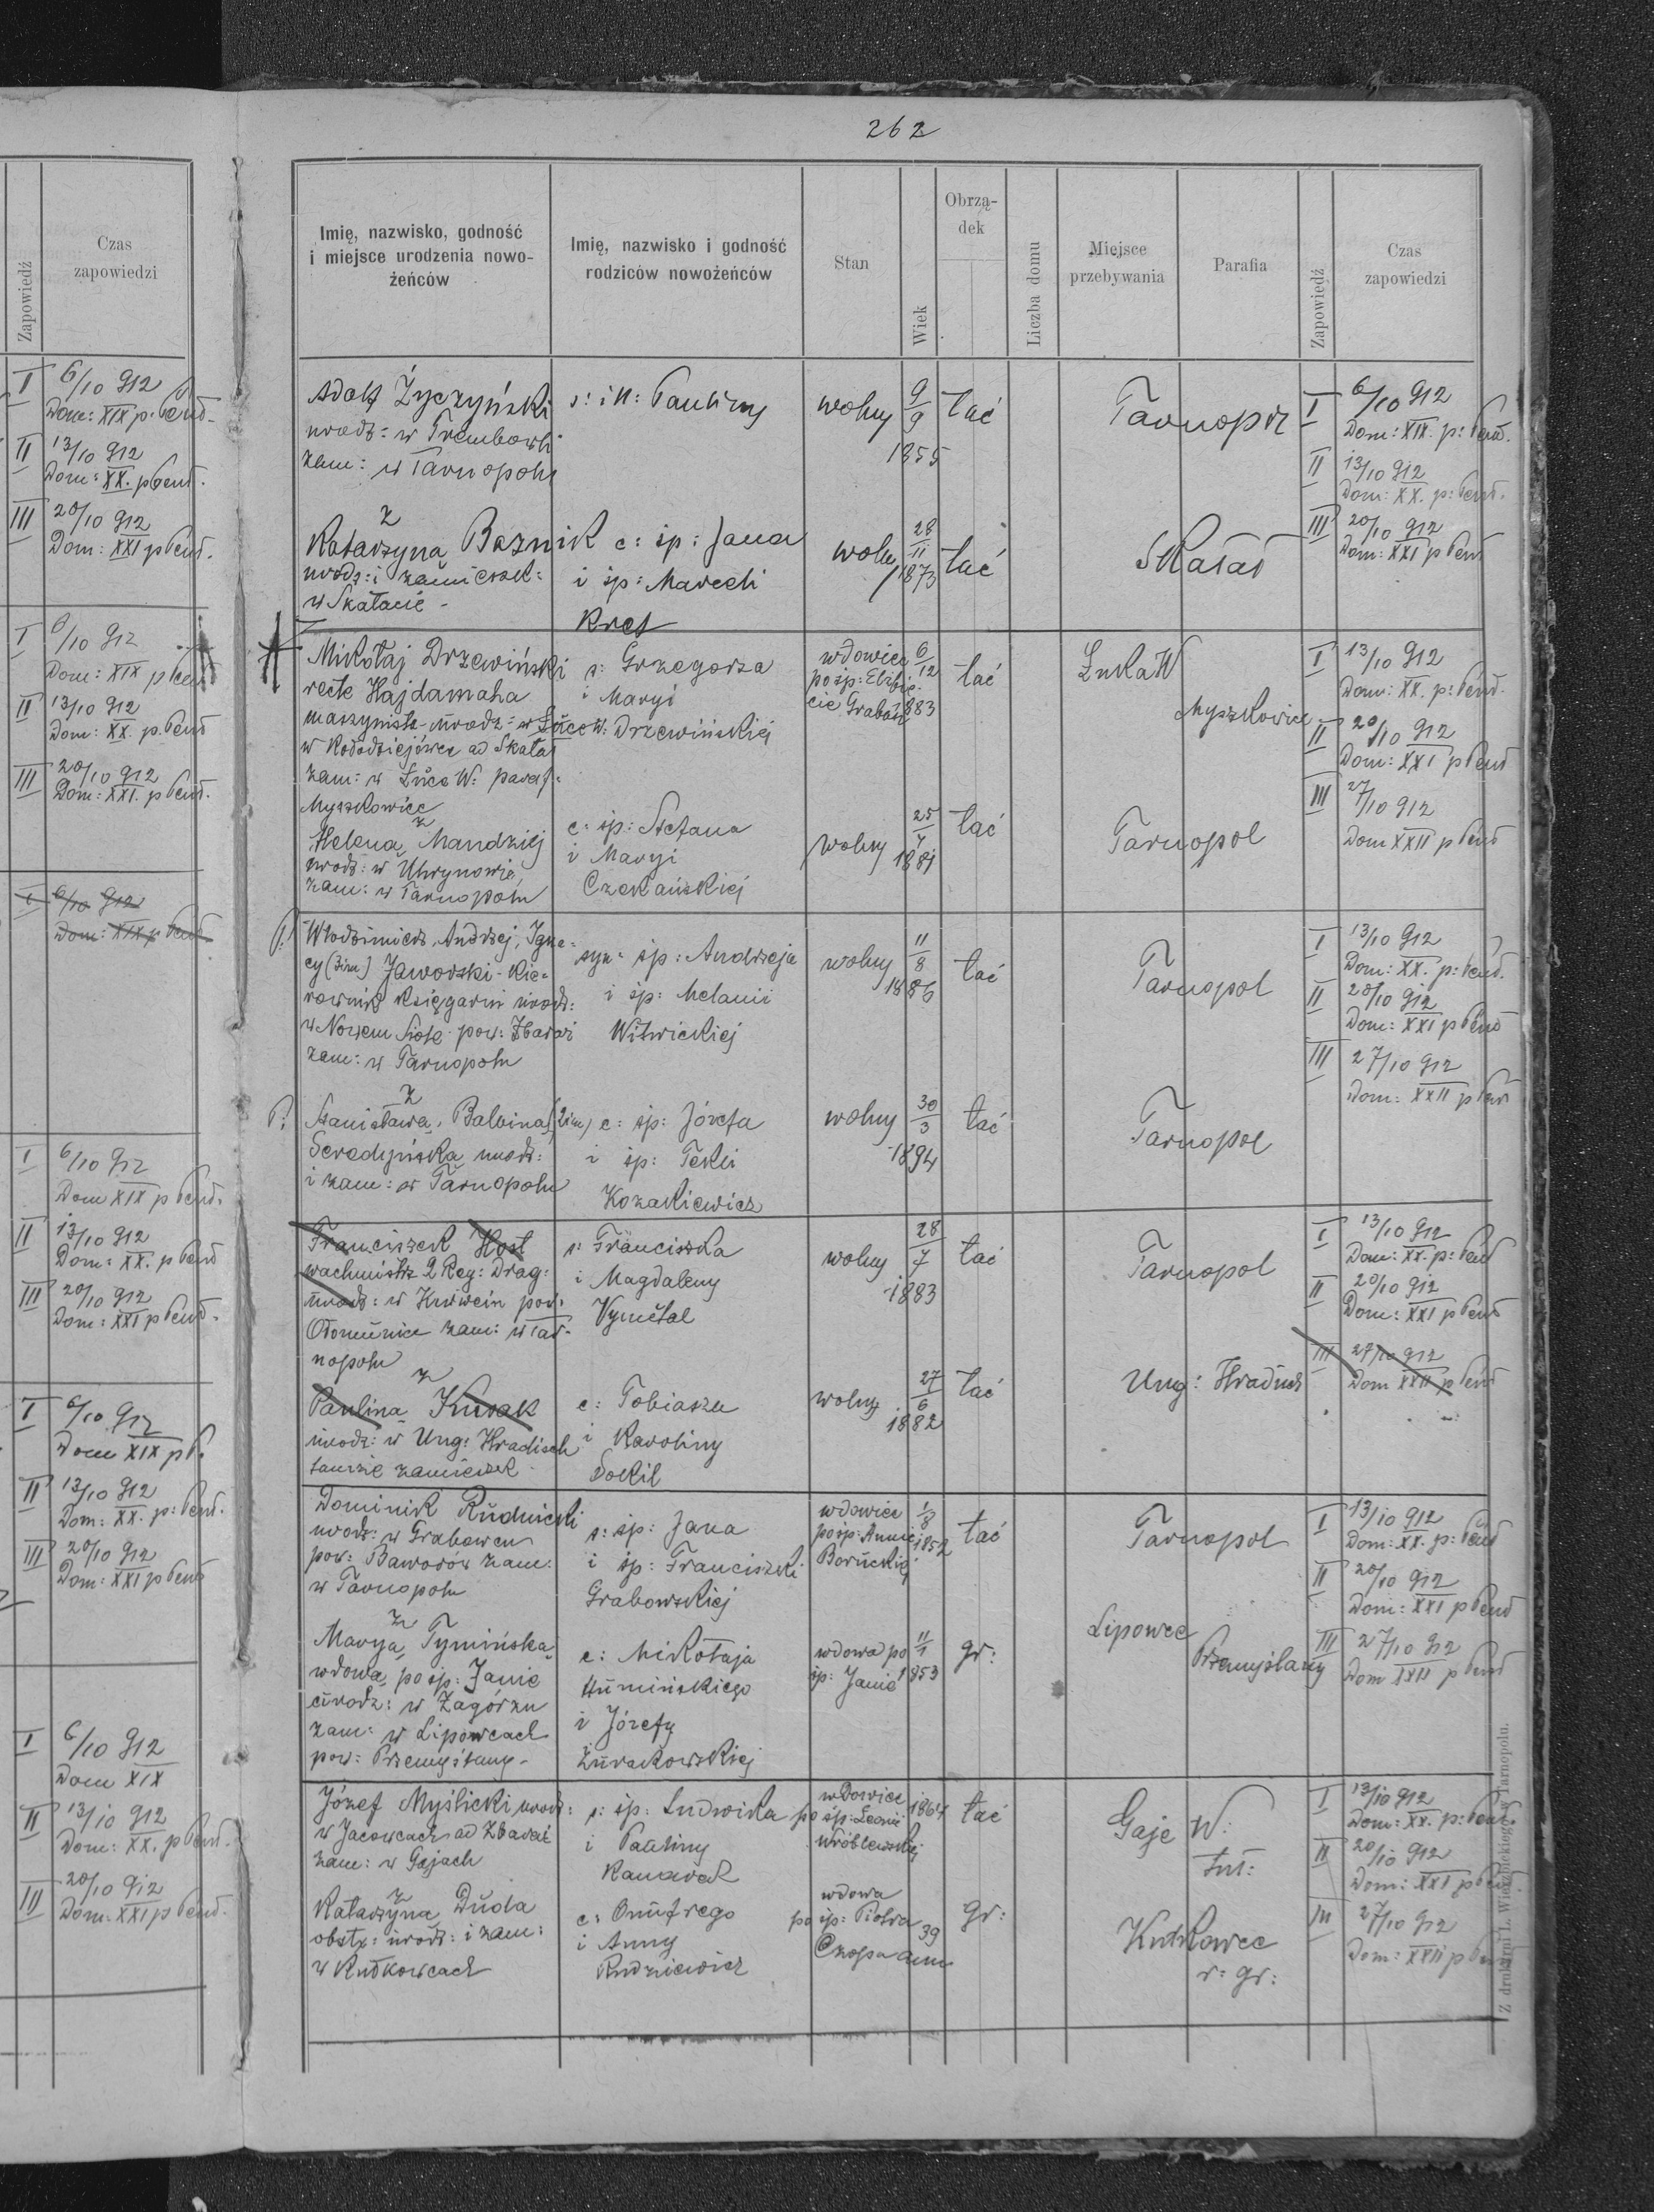 262
Zapowiedź
Czas
zapowiedzi
I 6/10 912
Dom: XIX p: Pent.
II 13/10 912
Dom: XX. p Pent.
III 20/10 912
Dom: XXI p Pent.
I 6/10 912
Dom: XIX p Pent
II 13/10 912
Dom: XX. p. Pent
III 20/10 912
Dom: XXI. p Pent.
I 6/10 912
Dom: XIX p Pent
I 6/10 912
Dom XIX p Pent.
II 13/10 912
Dom: XX. p Pent
III 20/10 912
Dom: XXI p Pent.
I 6/10 912
Dom XIX p P.
II 13/10 912
Dom: XX. p: Pent.
III 20/10 912
Dom: XXI p Pent
I 6/10 912
Dom XIX
II 13/10 912
Dom: XX. p Pent.
III 20/10 912
Dom: XXI p Pent.
Imię, nazwisko, godność
i miejsce urodzenia nowo-
żeńców
Imię, nazwisko i godność
rodziców nowożeńców
Stan
Wiek
Obrzą-
dek
Liczba domu
Miejsce
przebywania
Parafia
Zapowiedź
Czas
zapowiedzi
Adolf Życzyński
urodz: w Trembowli
zam: w Tarnopolu
s: Pauliny
wolny
9/9
1855
łać
Tarnopol
I 6/10 912
Dom: XIX. p: Pent.
II 13/10 912
Dom: XX. p: Pent.
III 20/10 912
Dom: XXI p Pent
z
Katarzyna Baznik
urodz: i zamieszk:
w Skałacie -
c: śp: Jana
i śp: Marceli
Kret
wolny
28/11
1873
łać
Skałat
Mikołaj Drzewiński
recte Hajdamaha
maszynista - urodz: w Łuce W:
w Kołodziejówce ad Skałat
zam: w Łuce W: paraf:
Myszkowice
s: Grzegorza
i Maryi
Drzewińskiej
wdowiec
po śp: Elżbie-
cie Graban
6/12
883
łać
Łuka W
Myszkowice
I 13/10 912
Dom: XX. p: Pent.
II 20/10 912
Dom: XXI p Pent
III 27/10 912
Dom XXII p Pent
z
Helena Mandziej
urodz: w Uhrynowie
zam: w Tarnopolu
c: śp: Stefana
i Maryi
Czekańskiej
wolny
25/7
1881
łać
Tarnopol
Włodzimierz, Andrzej, Igna-
cy (3im) Jaworski - Kie-
rownik księgarni urodz:
w Nowem Siole pow: Zbaraż
zam: w Tarnopolu
syn: śp: Andrzeja
i śp: Melanii
Witwickiej
wolny
11/8
1886
łać
Tarnopol
I 13/10 912
Dom: XX. p: Pent.
II 20/10 912
Dom: XXI p Pent
III 27/10 912
Dom: XXII p Pent
z
Stanisława, Balbina (2im)
Seredyńska urodz:
i zam: w Tarnopolu
c: śp: Józefa
i śp: Tekli
Kozakiewicz
wolny
30/3
1894
łać
Tarnopol
Franciszek Host
wachmistrz 2 Reg: Drag:
urodz: w Krzwein pow:
Ołomunice zam: w Tar-
nopolu
s: Franciszka
i Magdaleny
Vymětal
wolny
28/7
1883
łać
Tarnopol
I 13/10 912
Dom: XX. p: Pent
II 20/10 912
Dom: XXI p Pent
III 27/10 912
Dom XXII p Pent
z
Paulina Kusak
urodz: w Ung: Hradisch
tamże zamieszk
c: Tobiasza
i Karoliny
Dokil
wolny
27/6
1882
łać
Ung: Hradisch
Dominik Rudnicki
urodz: w Grabowcu
pow: Baworów zam:
w Tarnopolu
s: śp: Jana
i śp: Franciszki
Grabowskiej
wdowiec
po śp: Annie
Boruckiej
1/8
1852
łać
Tarnopol
I 13/10 912
Dom: XX. p: Pent
II 20/10 912
Dom: XXI p Pent
III 27/10 912
Dom XXII p Pent
z
Marya Tymińska
wdowa po śp: Janie
urodz: w Zagórzu
zam: w Lipowcach
pow: Przemyślany -
c: Mikołaja
Humińskiego
i Józefy
Żurakowskiej
wdowa po
śp: Janie
11/1
1853
gr:
Lipowce
Przemyślany
Józef Myślicki urodz:
w Jacowcach ad Zbaraż
zam: w Gajach
s: śp: Ludwika
i Pauliny
Kanarek
wdowiec
po śp: Leonii
Wróblewskiej
1864
łać
Gaje W:
tut:
I 13/10 912
Dom: XX. p: Pent.
II 20/10 912
Dom: XXI p Pent.
III 27/10 912
Dom: XXII p Pent
z
Katarzyna Duda
obstz: urodz: i zam:
w Kutkowcach
c: Onufrego
i Anny
Rudzniewicz
wdowa
po śp: Piotra
Czopa
39
ann
gr:
Kutkowce
r: gr:
Z drukarni L. Wierzbickiego w Tarnopolu.